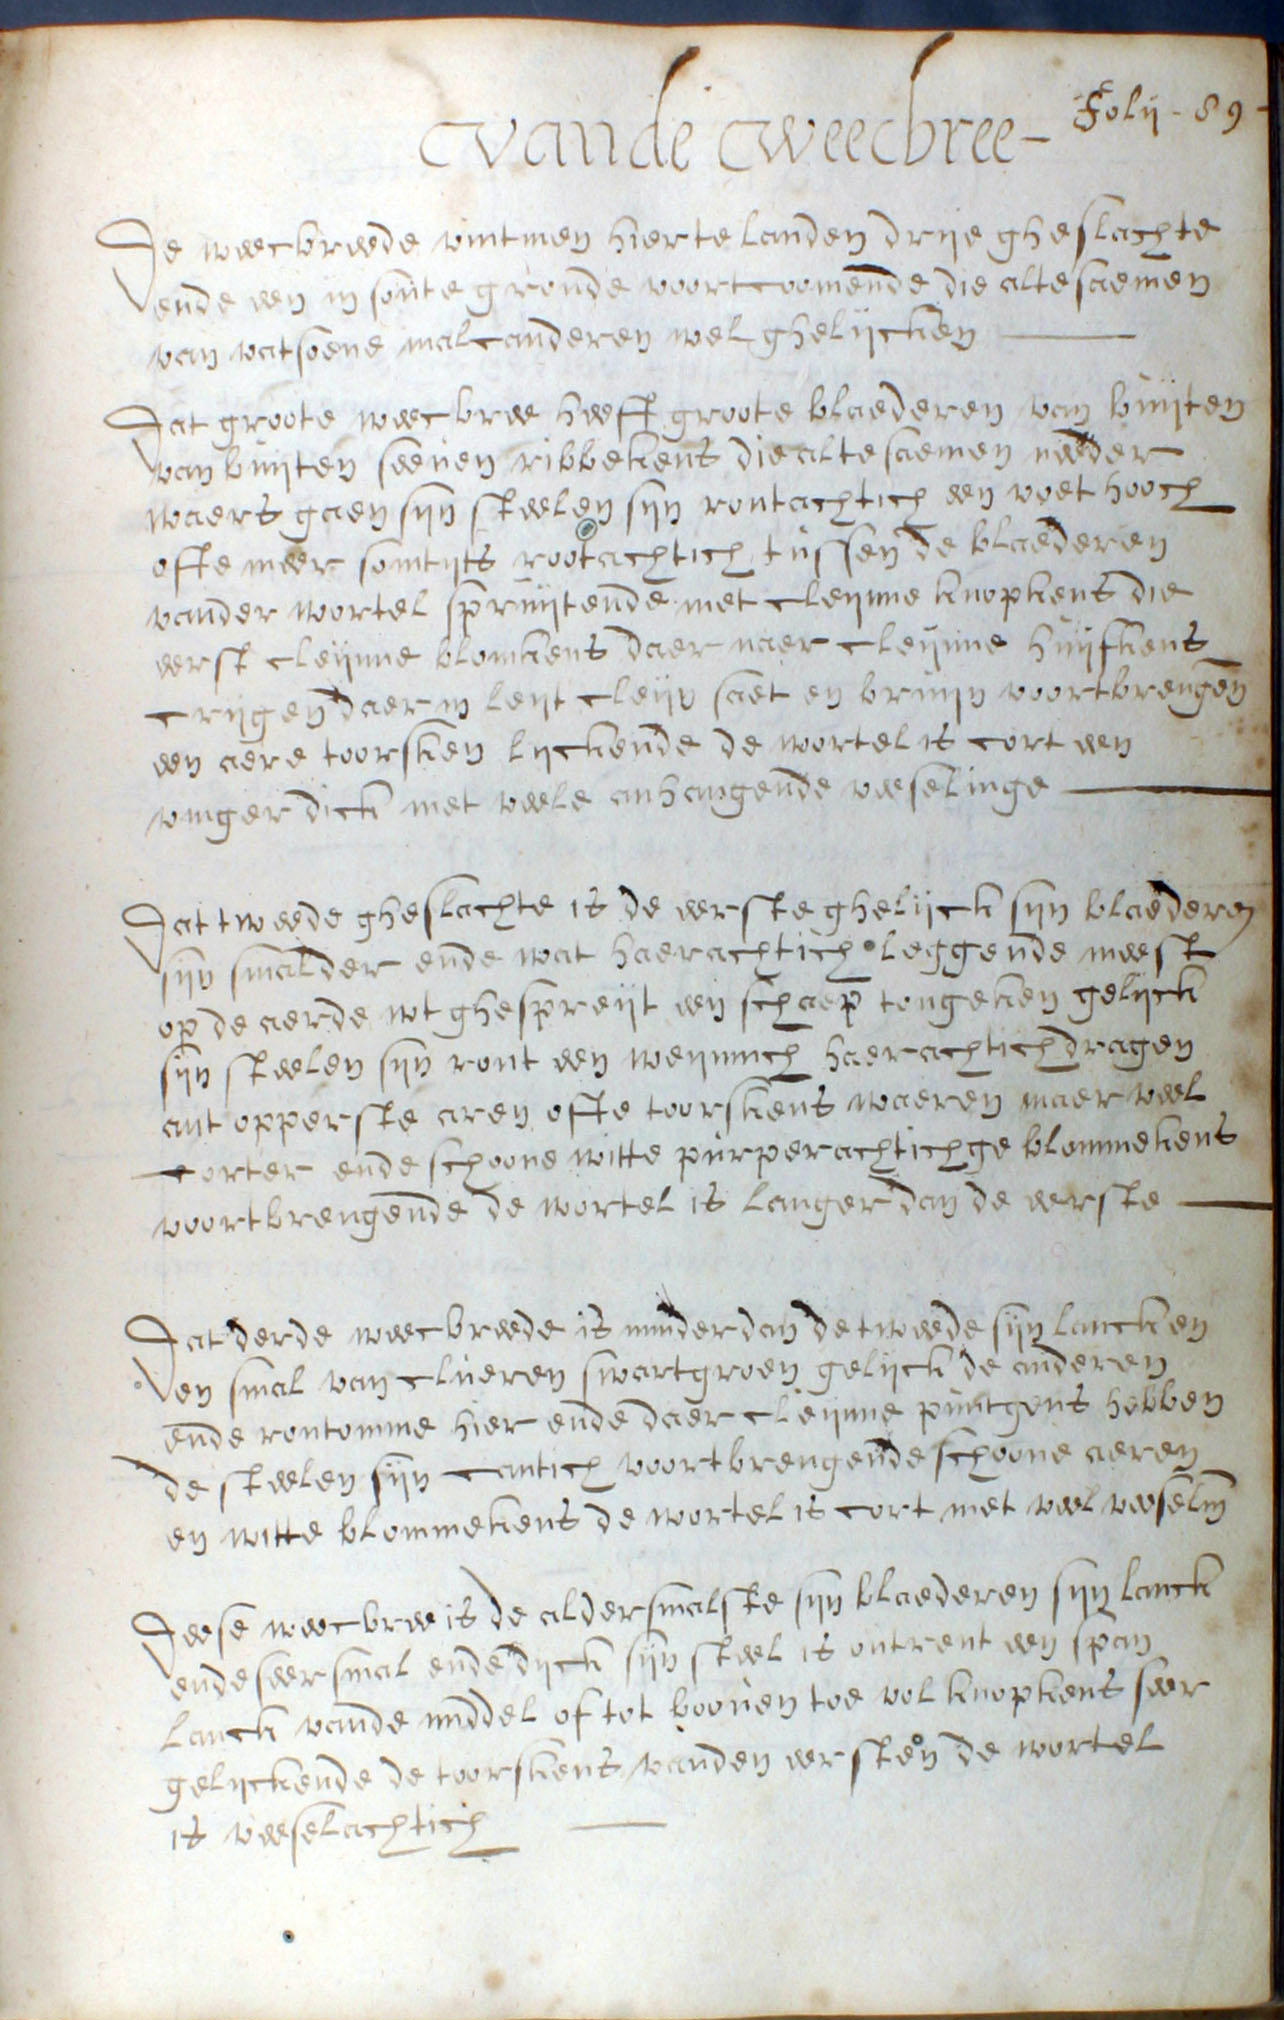 vande weechree - Folij - 89 -
De weecbreede vintmen hier te landen drije gheslachte
ende een in soute gronde voortcoomende die altesaemen
van vatsoene malcanderen wel ghelijcken
Dat groote weecbree heeft groote blaederen van buijten
van buijten seeuen ribbekens die altesaemen needer
waers gaen sijn steelen sijn rontachtich een voet hooch
ofte meer somtijts rootachtich tussen de blaederen
vander wortel spruijtende met cleijnne knopkens die
eerst cleijnne blomkens daer naer cleijnne huijskens
crijgen daer in leijt cleijn saet en bruijn voortbrengen
een aere toorsken lijckende de wortel is cort een
vinger dick met veele anhangende veeselinge
Dat tweede gheslachte is de eerste ghelijck sijn blaederen
sijn smalder ende wat haerachtich leggende meest
op de aerde wt ghespreijt een schaep tongeken gelijck
sijn steelen sijn ront een weijnnich haerachtich dragen
ant opperste aren ofte toorskens waeren maer veel
corter ende schoone witte purperachtichge blommekens
voortbrengende de wortel is langer dan de eerste
Dat derde weecbreede is minder dan de tweede sijn lanck en
en smal van clueren swartgroen gelijck de anderen
ende rontomme hier ende daer cleijnne puntgens hebben
de steelen sijn cantich voortbrengende schoone aeren
en witte blommekens de wortel is cort met veel veeselin
Deese weecbree is de aldersmalste sijn blaederen sijn lanck
ende seer smal ende dijck sijn steel is ontrent een span
lanck vande middel of tot boouen toe vol knopkens seer
gelijckende de toorskens vanden eersten de wortel
is veeselachtich